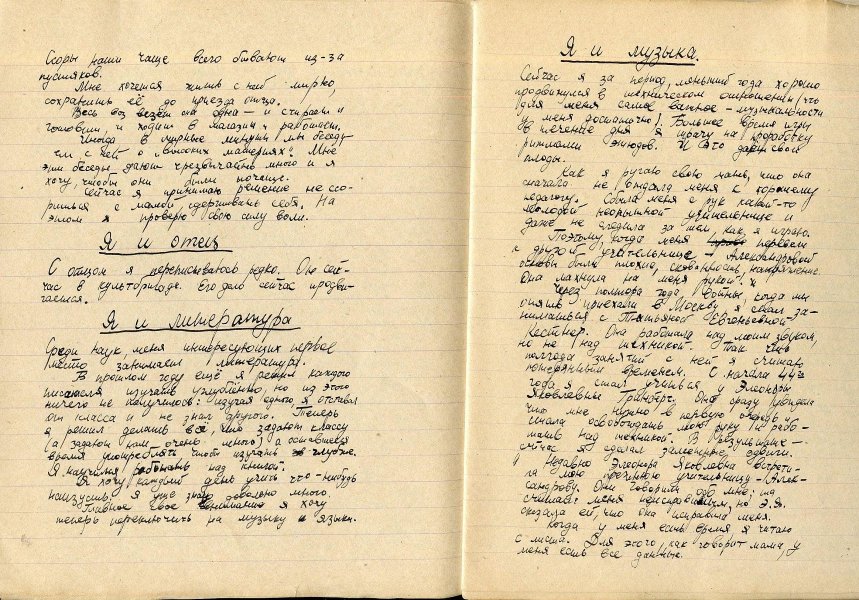 Ссоры наши чаще всего бывают из-за
пустяков.
Мне хочется жить с ней мирно
сохранить её до приезда отца.
Весь воз везёт она одна — и стирает и
готовит, и ходит в магазин и работает.
Иногда в мирные минуты мы беседу-
ем с ней о "высоких материях". Мне
эти беседы дают чрезвычайно много и я
хочу, чтобы они были почаще.
Сейчас я принимаю решение не ссо-
риться с мамой, сдерживать себя. На
этом я проверю свою силу воли.
Я и отец
С отцом я переписываюсь редко. Он сей-
час в культпоходе. Его дело сейчас продви-
гается.
Я и литература
Среди наук, меня интересующих первое
место занимает литература.
В прошлом году ещё я решил каждого
писателя изучать углублённо, но из этого
ничего не получилось: изучая одного, я отставал
от класса и не знал другого. Теперь
я решил делать всё, что задают классу
(а задают нам очень много) а оставшееся
время употреблять чтоб изучать глубже.
Я научился работать над книгой.
Я хочу каждый день учить что-нибудь
наизусть. Я уже знаю довольно много.
Главное своё внимание я хочу
теперь переключить на музыку и языки.
Я и музыка.
Сейчас я за период, меньший года хорошо
продвинулся в техническом отношении (что
для меня самое важное - музыкальности
у меня достаточно). Большее время игры
в течение дня я трачу на проработку
ритмами этюдов. И это даёт свои
плоды.
Как я ругаю свою мать, что она
сначала не отдала меня к хорошему
педагогу. Сбыла меня с рук какой-то
молодой неопытной учительнице и
даже не следила за тем, как я играю.
Поэтому, когда меня перевели
к другой учительнице - Александровой
основы были плохие, скованность, напряжение.
Она махнула на меня рукой.
Через полтора года войны, когда мы
опять приехали в Москву я стал за-
ниматься с Татьяной Евгеньевной
Кестнер. Она работала над моим звуком,
но не над техникой. Так что
полгода занятий с ней я считаю
потерянным временем. С начала 44го
года я стал учиться у Элеоноры
Яковлевны Гринберг. Она сразу увидела
что мне нужно в первую очередь и
стала освобождать мою руку и рабо-
тать над техникой. В результате -
сейчас я сделал заметные сдвиги.
Недавно Элеонора Яковлевна встрети-
ла мою прежнюю учительницу - Алек-
сандрову. Они говорили обо мне: та
считает меня неисправимым, но Э.Я.
сказала ей, что она исправила меня.
Когда у меня есть время я читаю
с листа. Для этого, как говорит мама, у
меня есть все данные.